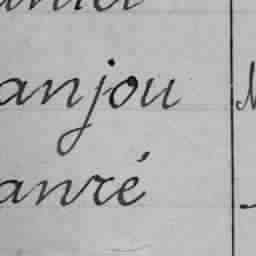 anjou
anré